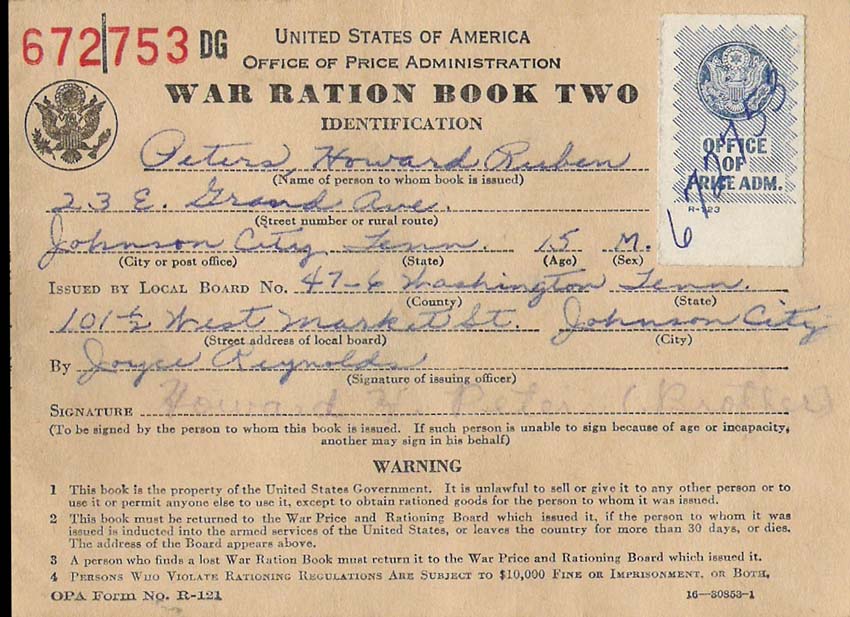 672753 DG
UNITED STATES OF AMERICA
OFFICE OF PRICE ADMINISTRATION
WAR RATION BOOK TWO
IDENTIFICATION
OFFICE
OF
PRICE ADM.
R-123
672753
Peters, Howard Ruben
(Name of person to whom book is issued)
23 E. Grand Ave.
(Street number or rural route)
Johnson City Tenn. 15 M.
(City or post office) (State) (Age) (Sex)
ISSUED BY LOCAL BOARD NO. 47-6 Washington Tenn.
(County) (State)
101 1/2 West Market St. Johnson City
(Street address of local board) (City)
By Joyce Reynolds
(Signature of issuing officer)
SIGNATURE Howard
(To be signed by the person to whom this book is issued. If such person is unable to sign because of age or incapacity,
another may sign in his behalf)
WARNING
1 This book is the property of the United States Government. It is unlawful to sell or give it to any other person or to
use it or permit anyone else to use it, except to obtain rationed goods for the person to whom it was issued.
2 This book must be returned to the War Price and Rationing Board which issued it, if the person to whom it was
issued is inducted into the armed services of the United States, or leaves the country for more than 30 days, or dies.
The address of the Board appears above.
3 A person who finds a lost War Ration Book must return it to the War Price and Rationing Board which issued it.
4 PERSONS WHO VIOLATE RATIONING REGULATIONS ARE SUBJECT TO $10,000 FINE OR IMPRISONMENT, OR BOTH.
OPA FORM NO. R-121 16—30853-1